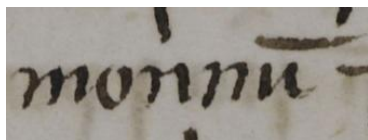 monnū